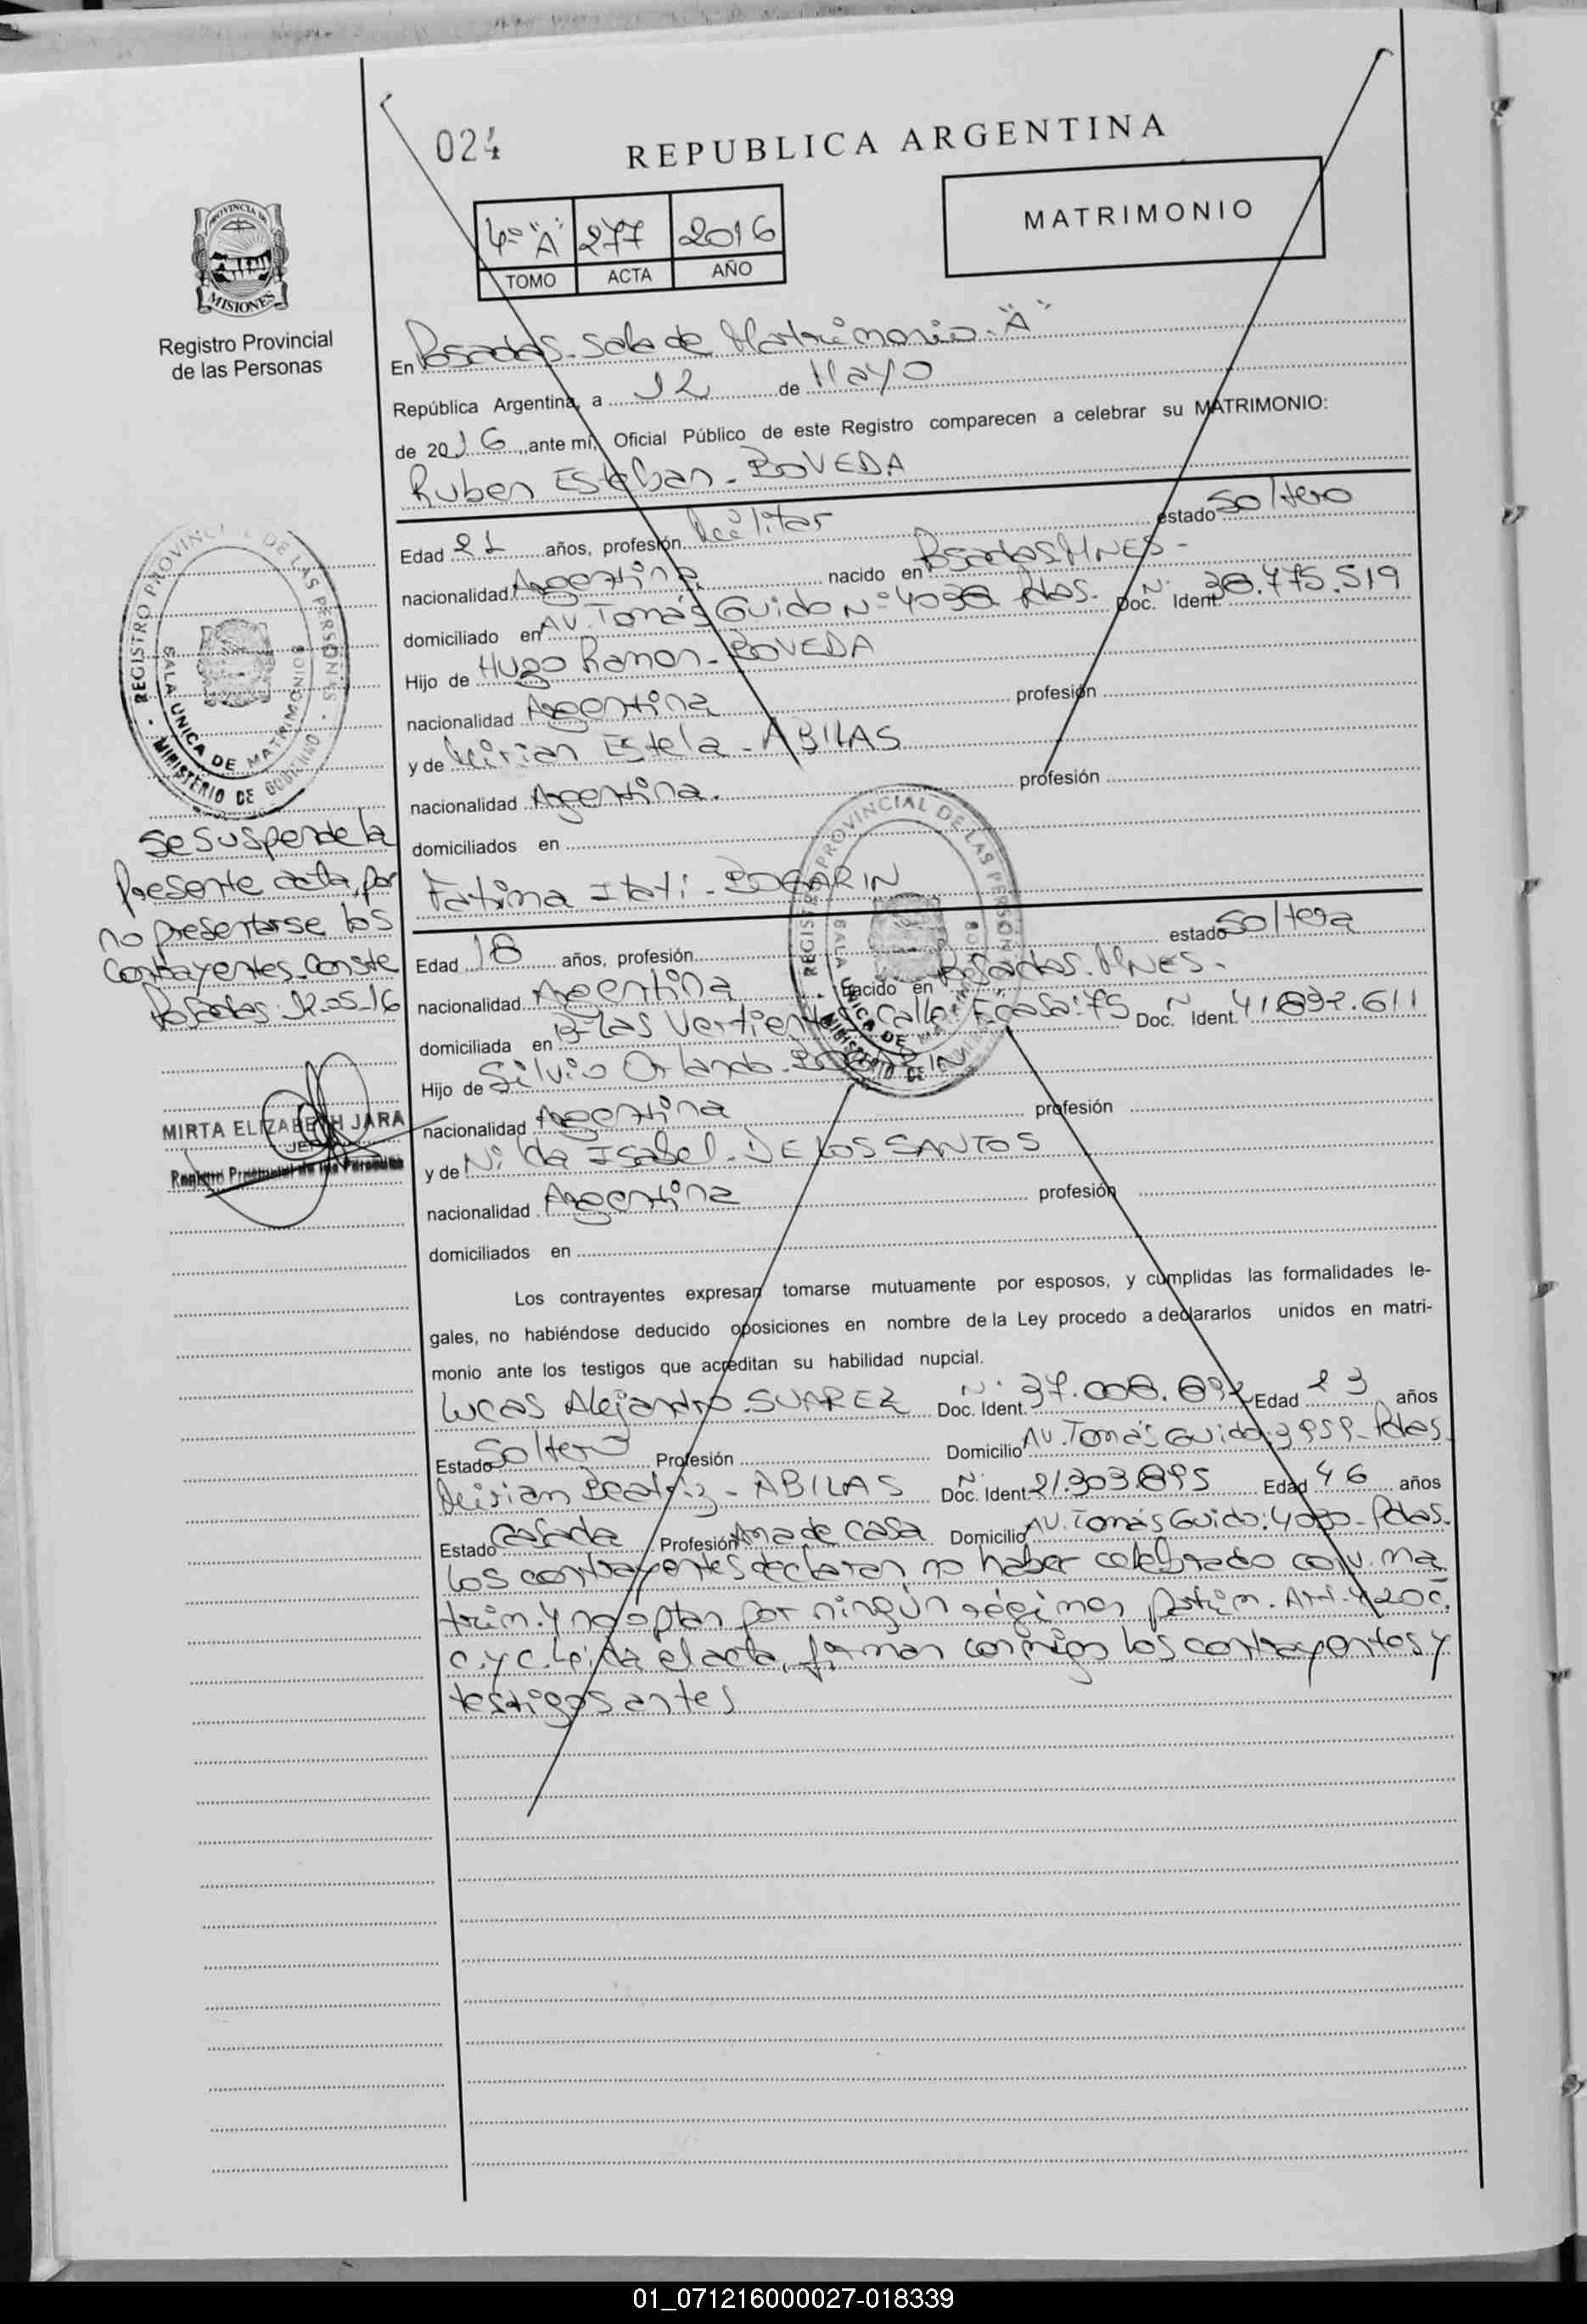 024
REPUBLICA ARGENTINA
4º "A" 277 2016
TOMO ACTA AÑO
MATRIMONIO
PROVINCIA DE
MISIONES
Registro Provincial
de las Personas
En Posadas - Sala de Matrimonio - "A"
República Argentina, a 12 de Mayo
de 2016, ante mí, Oficial Público de este Registro comparecen a celebrar su MATRIMONIO:
Ruben Esteban - BOVEDA
Edad 21 años, profesión Militar estado Soltero
nacionalidad Argentina nacido en Posadas MNES -
domiciliado en AV. Tomás Guido Nº 4038 Pdas. Doc. Ident. Nº 38.775.519
Hijo de Hugo Ramon - BOVEDA
nacionalidad Argentina profesión
y de Mirian Estela - ABILAS
nacionalidad Argentina. profesión
domiciliados en
Fatima Itati - BOGARIN
Edad 18 años, profesión estado Soltera
nacionalidad Argentina nacido en Posadas. MNES -
domiciliada en Bº Las Vertientes Calle: F. casa: 75 Doc. Ident. Nº 41.892.611
Hijo de Silvio Orlando - BOGARIN
nacionalidad Argentina profesión
y de Nilda Isabel - DE LOS SANTOS
nacionalidad Argentina profesión
domiciliados en
Los contrayentes expresan tomarse mutuamente por esposos, y cumplidas las formalidades le-
gales, no habiéndose deducido oposiciones en nombre de la Ley procedo a declararlos unidos en matri-
monio ante los testigos que acreditan su habilidad nupcial.
Lucas Alejandro - SUAREZ Doc. Ident. Nº 37.008.892 Edad 23 años
Estado Soltero Profesión Domicilio AV. Tomás Guido: 3959 - Pdas.
Mirian Beatriz - ABILAS Doc. Ident. Nº 21.303.895 Edad 46 años
Estado Casada Profesión Ama de casa Domicilio AV. Tomás Guido: 4030 - Pdas.
Los contrayentes declaran no haber celebrado conv. ma
trim. y no optan por ningún régimen patrim. Art. 420 C.
C. y C. Leída el acta, firman conmigo los contrayentes y
testigos antes
REGISTRO PROVINCIAL DE LAS PERSONAS
SALA UNICA DE MATRIMONIO
MINISTERIO DE GOBIERNO
Se suspende la
Presente acta por
no presentarse los
Contrayentes. Conste
Posadas: 12-05-16
MIRTA ELIZABETH JARA
JEFA
Registro Provincial de las Personas
REGISTRO PROVINCIAL DE LAS PERSONAS
SALA UNICA DE MATRIMONIO
MINISTERIO DE GOBIERNO
01_071216000027-018339